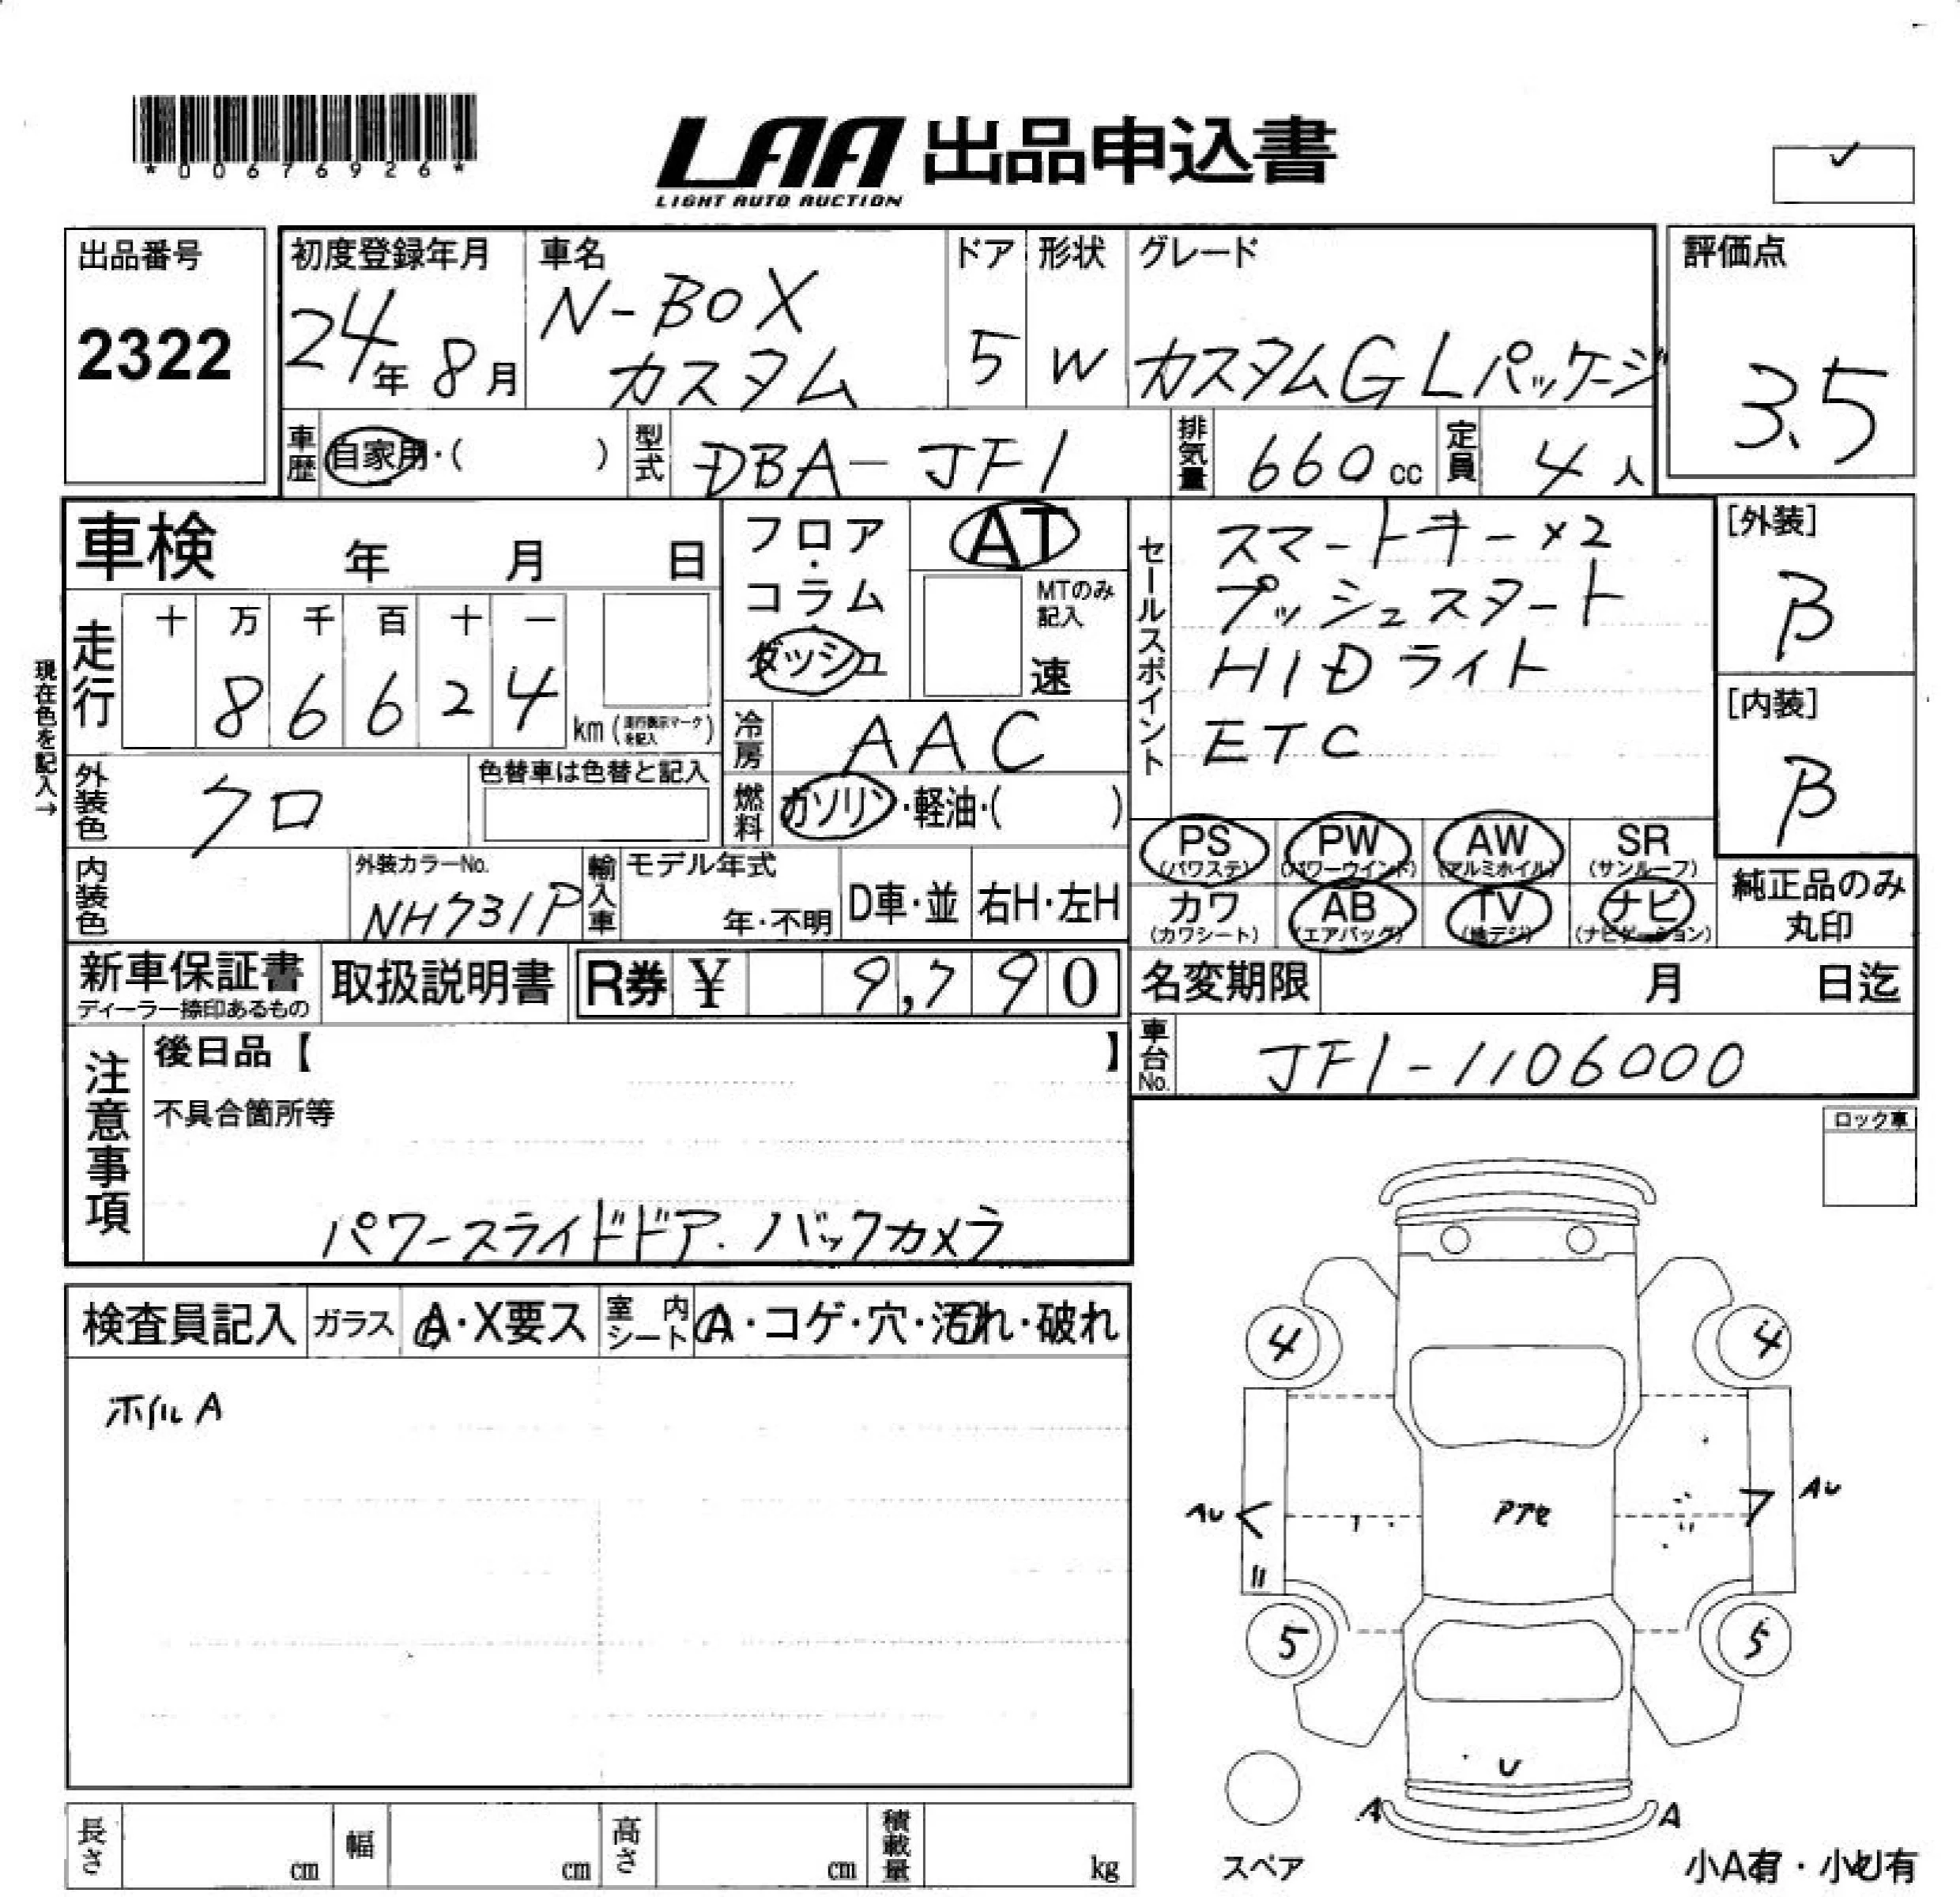 *00676926*
LAA 出品申込書
LIGHT AUTO AUCTION
✓
出品番号
2322
初度登録年月
24年 8月
車名
N-BOX
カスタム
ドア
5
形状
W
グレード
カスタムG Lパッケージ
評価点
3.5
車歴
自家用・(   )
型式
DBA-JF1
排気量
660 cc
定員
4 人
車検 年 月 日
フロア・コラム
ダッシュ
AT
MTのみ記入
速
セールスポイント
スマートキー×2
プッシュスタート
HIDライト
ETC
[外装]
β
[内装]
β
現在色を記入→
走行
十 万 千 百 十 一
8 6 6 2 4
km(走行表示マークを記入)
冷房
AAC
外装色
クロ
色替車は色替と記入
燃料
ガソリン・軽油・(   )
PS (パワステ)
PW (パワーウインド)
AW (アルミホイル)
SR (サンルーフ)
カワ (カワシート)
AB (エアバッグ)
TV (地デジ)
ナビ (ナビゲーション)
純正品のみ
丸印
内装色
外装カラーNo.
NH731P
輸入車
モデル年式
年・不明
D車・並
右H・左H
新車保証書
ディーラー捺印あるもの
取扱説明書
R券 ¥ 9,790
名変期限 月 日迄
車台No.
JF1-1106000
注意事項
後日品【   】
不具合箇所等
パワースライドドア. バックカメラ
ロック車
検査員記入
ガラス
A・X要ス
室内シート
A・コゲ・穴・汚れ・破れ
ホイルA
4
4
AU
AU
5
5
U
A
A
スペア
長さ cm
幅 cm
高さ cm
積載量 kg
小A有・小U有